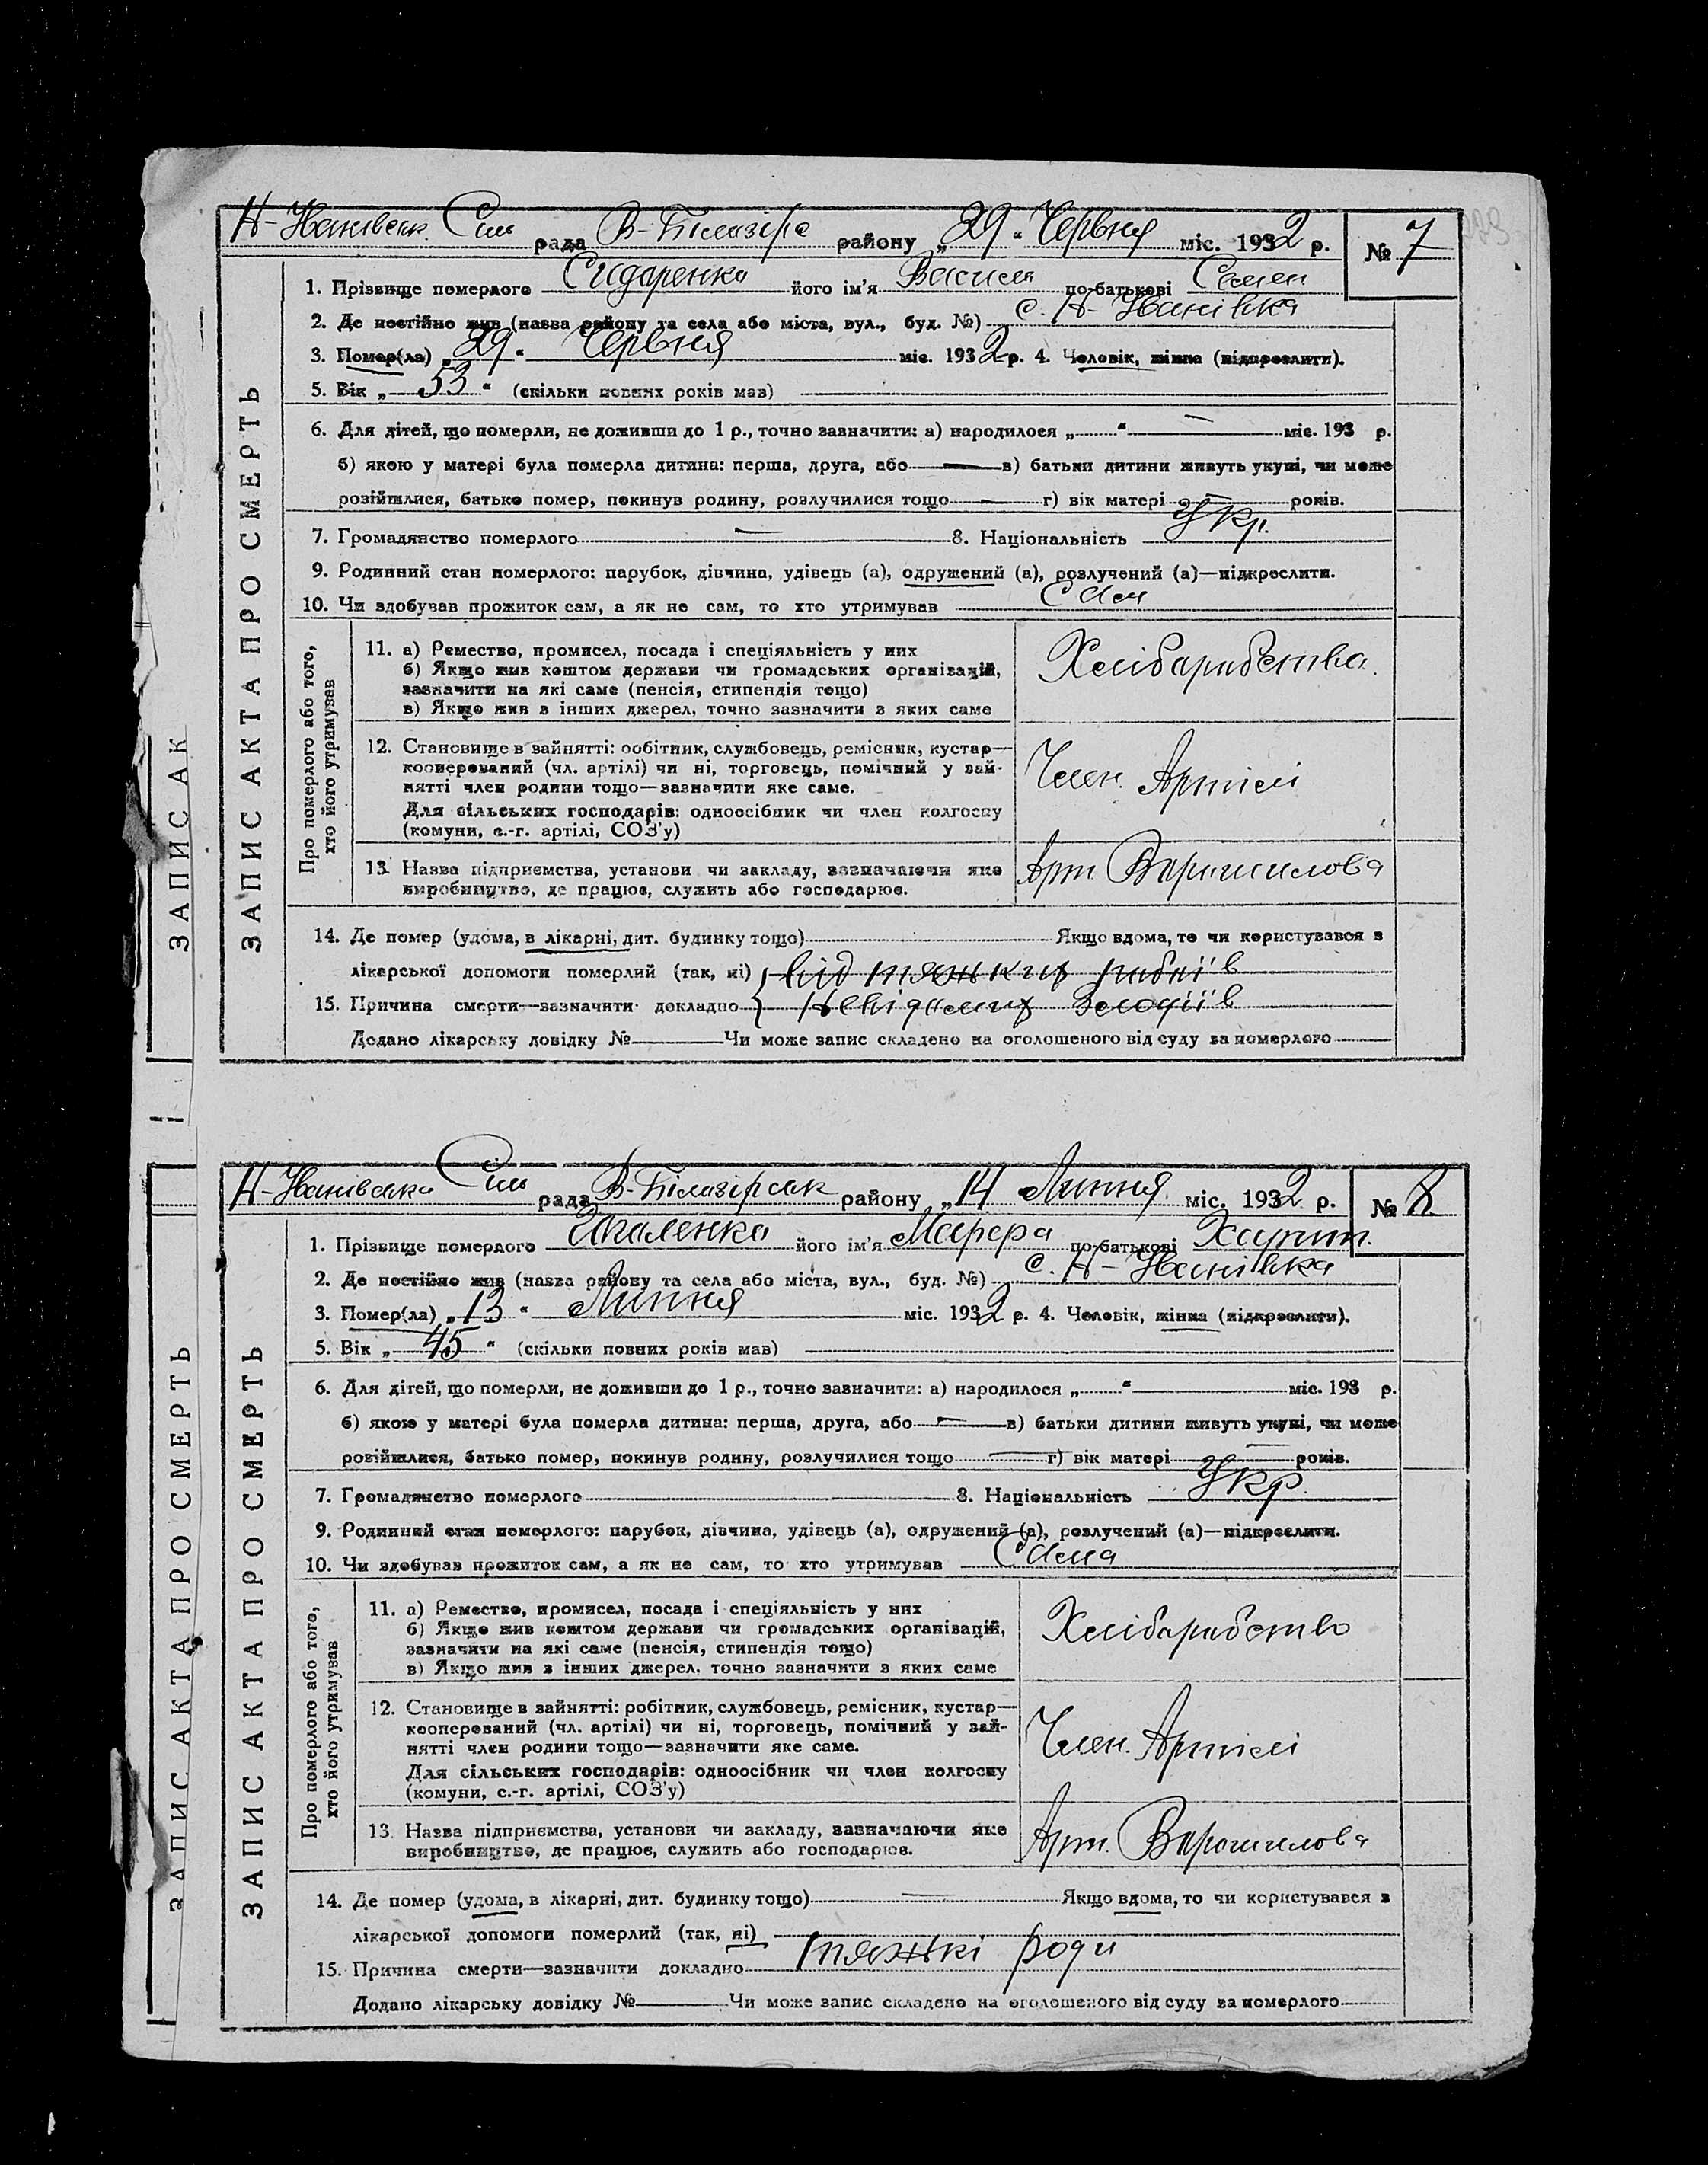 Н-Іванівськ. Сіль рада В-Білозірс району „29“ Червня міс. 1932 р. № 7
1. Прізвище померлого Сидаренко його ім'я Василь по-батькові Семен
2. Де постійно жив (назва району та села або міста, вул., буд. №) с. Н-Іванівка
3. Помер(ла) „29“ Червня міс. 1932 р. 4. Чоловік, жінка (підкреслити).
5. Вік „53“ (скільки повних років мав)
6. Для дітей, що померли, не доживши до 1 р., точно зазначити: а) народилося „ “ — міс. 193 р.
б) якою у матері була померла дитина: перша, друга, або — в) батьки дитини живуть укупі, чи може
розійшлися, батько помер, покинув родину, розлучилися тощо — г) вік матері — років.
7. Громадянство померлого — 8. Національність Укр.
9. Родинний стан померлого: парубок, дівчина, удівець (а), одружений (а), розлучений (а)—підкреслити.
10. Чи здобував прожиток сам, а як не сам, то хто утримував Сам
Про померлого або того,
хто його утримував
11. а) Ремество, промисел, посада і спеціяльність у них
б) Якщо жив коштом держави чи громадських організацій,
зазначити на які саме (пенсія, стипендія тощо)
в) Якщо жив з інших джерел, точно зазначити з яких саме
Хлібаробство.
12. Становище в зайнятті: робітник, службовець, ремісник, кустар—
кооперований (чл. артілі) чи ні, торговець, помічний у зай-
нятті член родини тощо—зазначити яке саме.
Для сільських господарів: одноосібник чи член колгоспу
(комуни, с.-г. артілі, СОЗ'у)
Член. Артілі
13. Назва підприємства, установи чи закладу, зазначаючи яке
виробництво, де працює, служить або господарює.
Арт. Ворошилова
14. Де помер (удома, в лікарні, дит. будинку тощо) Якщо вдома, то чи користувався з
лікарської допомоги померлий (так, ні) від тяжких
15. Причина смерти—зазначити докладно Невідомих злодіїв
Додано лікарську довідку № Чи може запис складено на оголошеного від суду за померлого
ЗАПИС АКТА ПРО СМЕРТЬ
ЗАПИС АК
Н-Іванівська Сіль рада В-Білозірськ району „14 Липня міс. 1932 р. № 8
1. Прізвище померлого його ім'я Марфа по-батькові Харит.
2. Де постійно жив (назва району та села або міста, вул., буд. №) с. Н-Іванівка
3. Помер(ла) „13“ Липня міс. 1932 р. 4. Чоловік, жінка (підкреслити).
5. Вік „45“ (скільки повних років мав)
6. Для дітей, що померли, не доживши до 1 р., точно зазначити: а) народилося „ “ міс. 193 р.
б) якою у матері була померла дитина: перша, друга, або — в) батьки дитини живуть укупі, чи може
розійшлися, батько помер, покинув родину, розлучилися тощо — г) вік матері — років.
7. Громадянство померлого 8. Національність Укр
9. Родинний стан померлого: парубок, дівчина, удівець (а), одружений (а), розлучений (а)—підкреслити.
10. Чи здобував прожиток сам, а як не сам, то хто утримував Сама
Про померлого або того,
хто його утримував
11. а) Ремество, промисел, посада і спеціяльність у них
б) Якщо жив коштом держави чи громадських організацій,
зазначити на які саме (пенсія, стипендія тощо)
в) Якщо жив з інших джерел, точно зазначити з яких саме
Хлібаробство
12. Становище в зайнятті: робітник, службовець, ремісник, кустар—
кооперований (чл. артілі) чи ні, торговець, помічний у зай-
нятті член родини тощо—зазначити яке саме.
Для сільських господарів: одноосібник чи член колгоспу
(комуни, с.-г. артілі, СОЗ'у)
Член. Артілі
13. Назва підприємства, установи чи закладу, зазначаючи яке
виробництво, де працює, служить або господарює.
Арт. Ворошилова
14. Де помер (удома, в лікарні, дит. будинку тощо) — Якщо вдома, то чи користувався з
лікарської допомоги померлий (так, ні)
15. Причина смерти—зазначити докладно тяжкі роди
Додано лікарську довідку № Чи може запис складено на оголошеного від суду за померлого
ЗАПИС АКТА ПРО СМЕРТЬ
ЗАПИС АКТА ПРО СМЕРТЬ